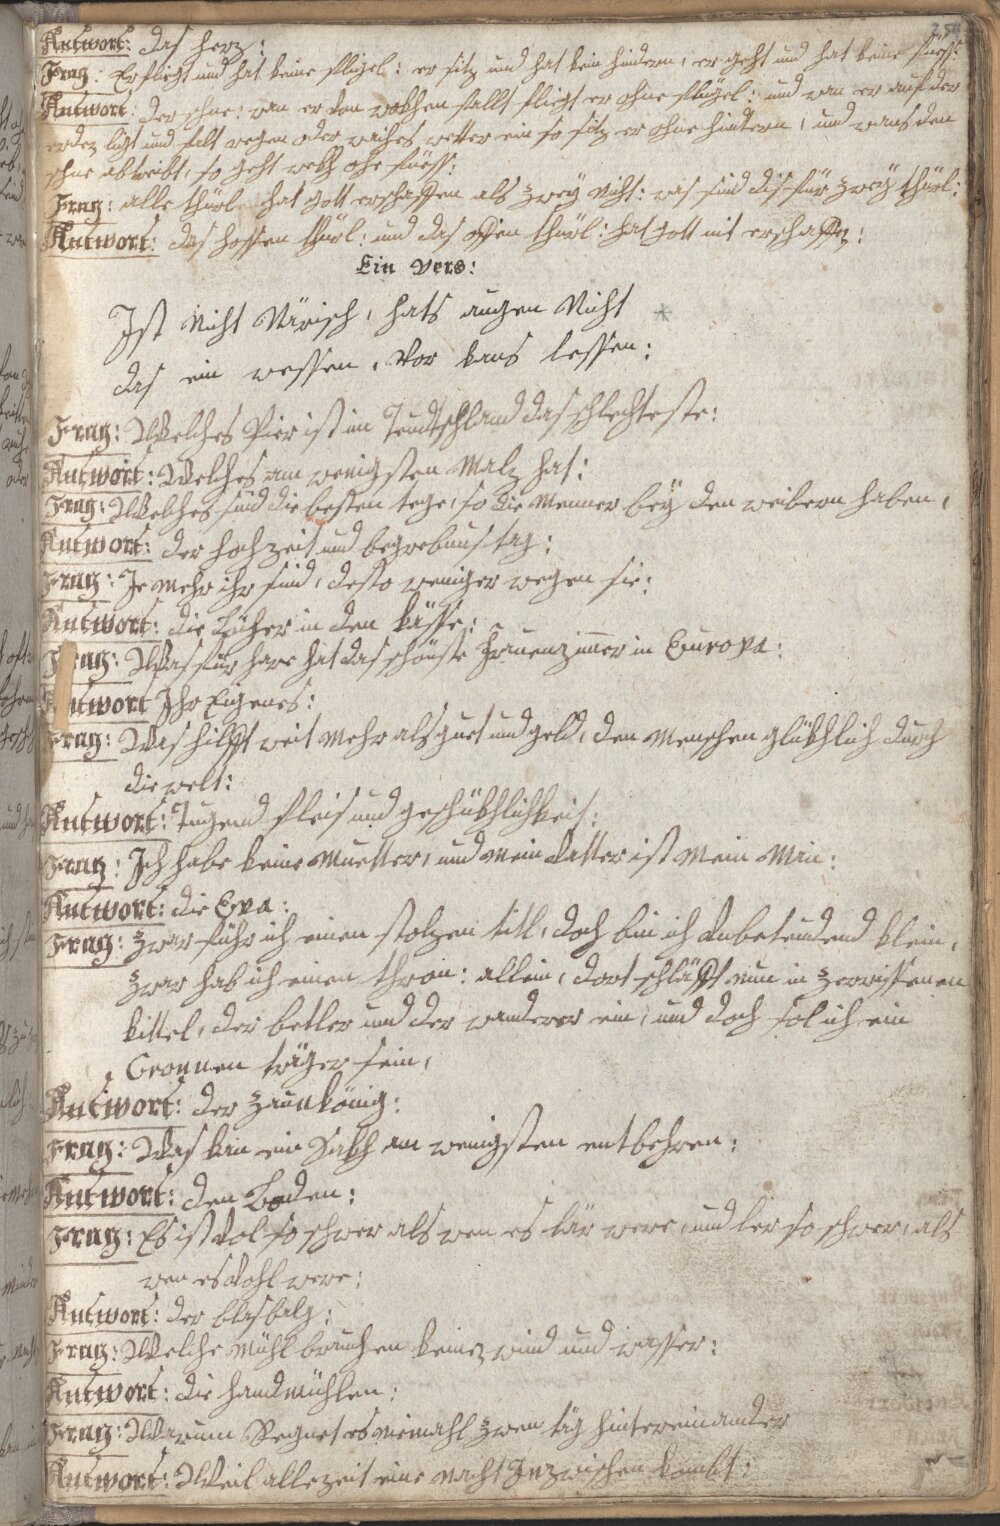 254
Antwort: das herz:
Frag: Er fliegt und hat keine fligel: er sitz und hat kein hindern, er geht und hat keine füess:
Antwort: der schne: wan er von wolkhen fallt fliegt er ohne flügel: und wan er auf der
erden ligt und falt regen oder waihes wetter ein so sitz er ohne hintern, und wans den
schne abtreibt, so geht wekh ohe füess:
Frag: alle thürlen hat gott erschaffen als zweÿ nicht: was sind dis für zweÿ thürl:
Antwort: das hossen thürl: und das offen thürl: hat gott nit erschaffen:
Ein Vers:
Ist nicht Närisch, hats augen Nicht
das ein wessen, Vor kans lessen:
Frag: Welches Pier ist im Teudtschland das schlechteste:
Antwort: Welches am wenigsten Malz hat:
Frag: Welches sind die besten tege, so die Menner beÿ den weibern haben,
Antwort: der hochzeit und begrebnus tag:
Frag: Je mehr ihr sind, desto weniger wegen sie:
Antwort: die Löcher in den kässe:
Frag: Was für hare hat das schönste Frauenzimer in Europa:
Antwort Ihr Eigenes:
Frag: Was hilfft weit mehr als guet und geld, den menschen glükhlich durch
die welt:
Antwort: Tugend fleis und geschükhlichkeit:
Frag: Ich habe keine Muetter, und mein Vatter ist mein Man:
Antwort: die Eva:
Frag: Zwar führ ich einen stolzen titl, doch bin ich Unbeteudend klein,
Zwar hab ich einen thron: allein, dort schläfft nun in zerrissenen
kittel, der betler und der wanderer ein, und doch sol ich ein
Cronnen träger sein,
Antwort: der Zaunkönig:
Frag: Was kan ein Sakh am wenigsten entbehren:
Antwort: den Boden:
Frag: Es ist Vol so schwer als wen es lär were, und ler so schwer, als
wen es Vohl were:
Antwort: der blasbalg:
Frag: Welche Mühl brauchen keinen wind und wasser:
Antwort: die handmühlen:
Frag: Warum Regnet es niemahl zwen täg hintereinander
Antwort: Weil allezeit eine nacht Inzwischen kombt: